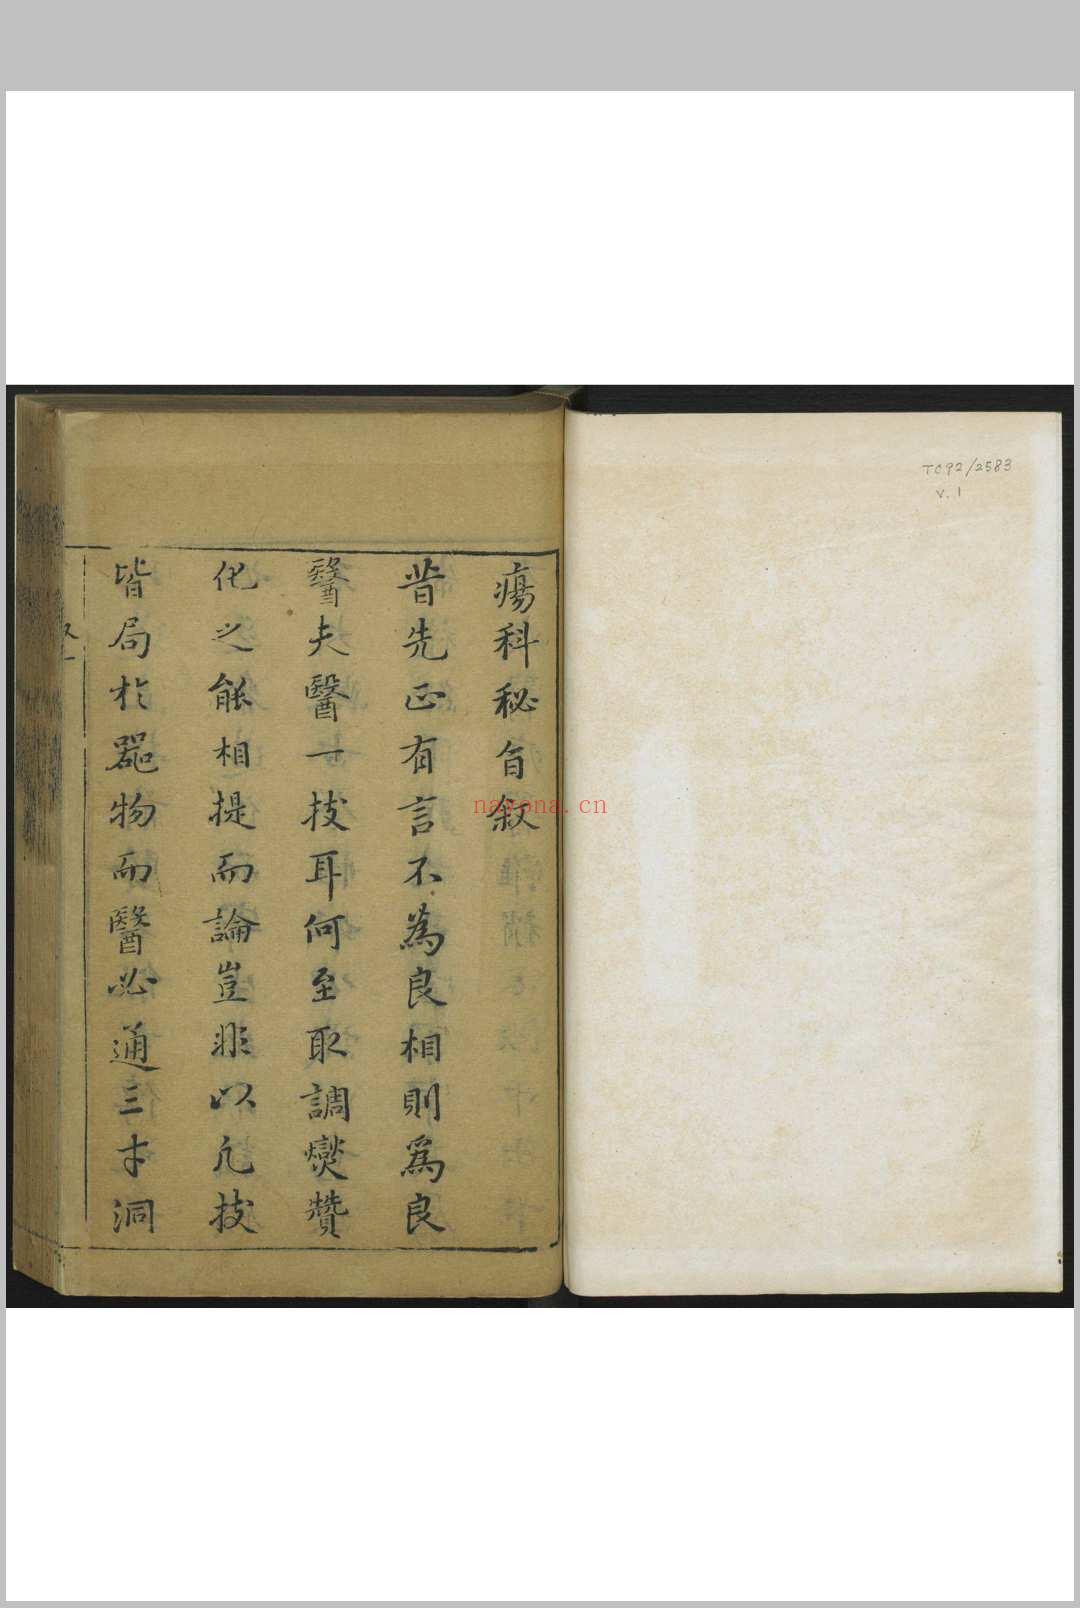 TC92/2583
v.1
瘍科秘旨叙
昔先正有言不為良相則爲良
醫夫醫一技耳何至取調燮贊
化之能相提而論豈非以凢技
皆局於器物而醫必通三才洞
nayona.cn